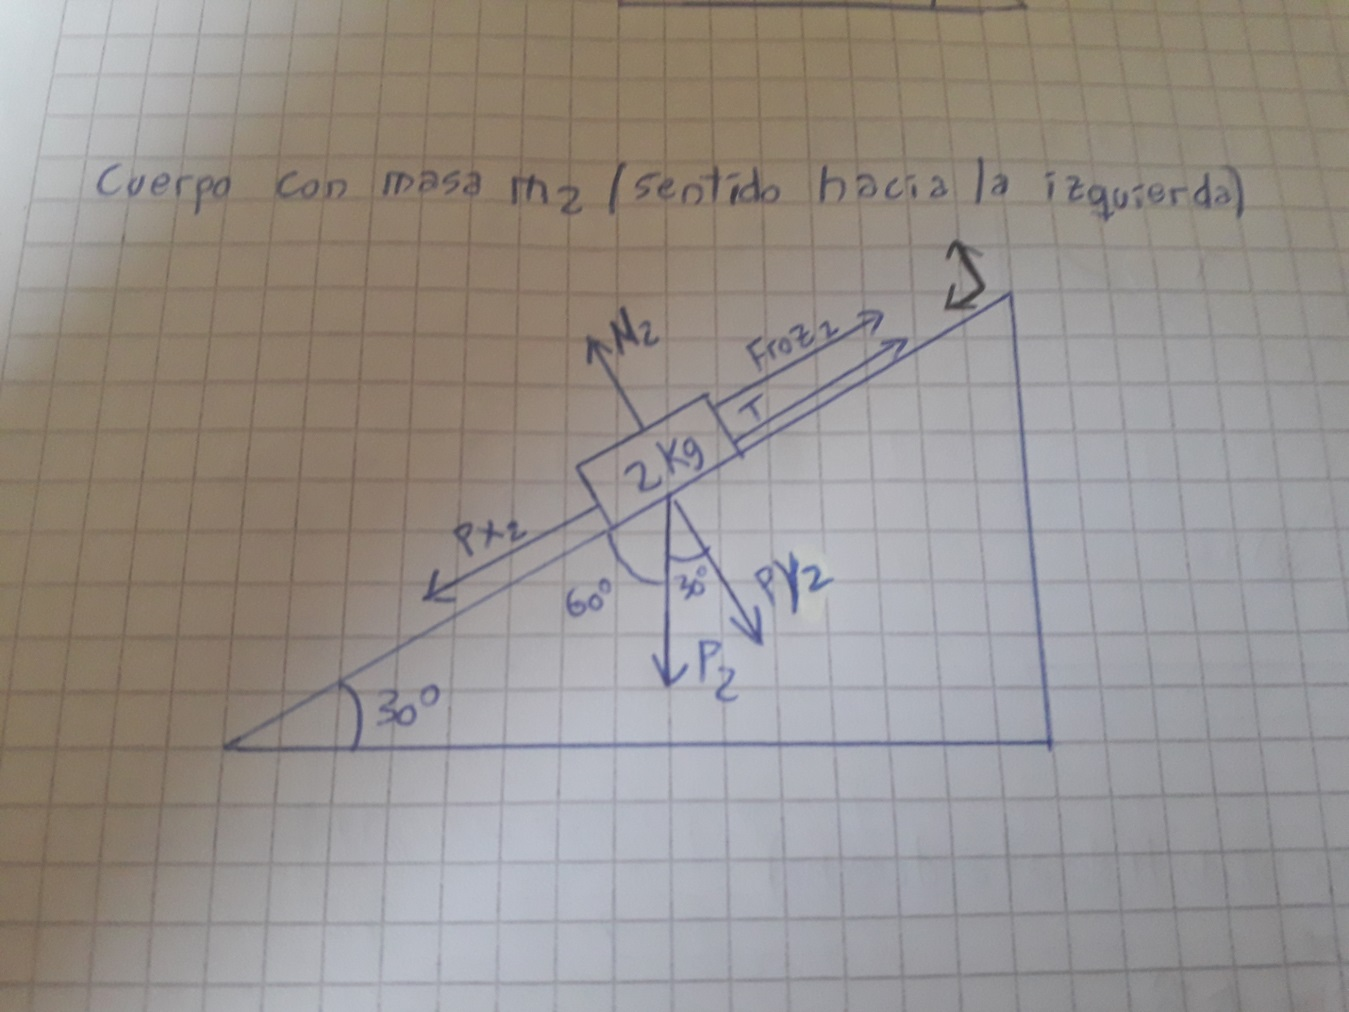 Cuerpo con masa m2 (sentido hacia la izquierda)
N2
Froz2
T
2 Kg
Px2
60°
30°
Py2
P2
30°